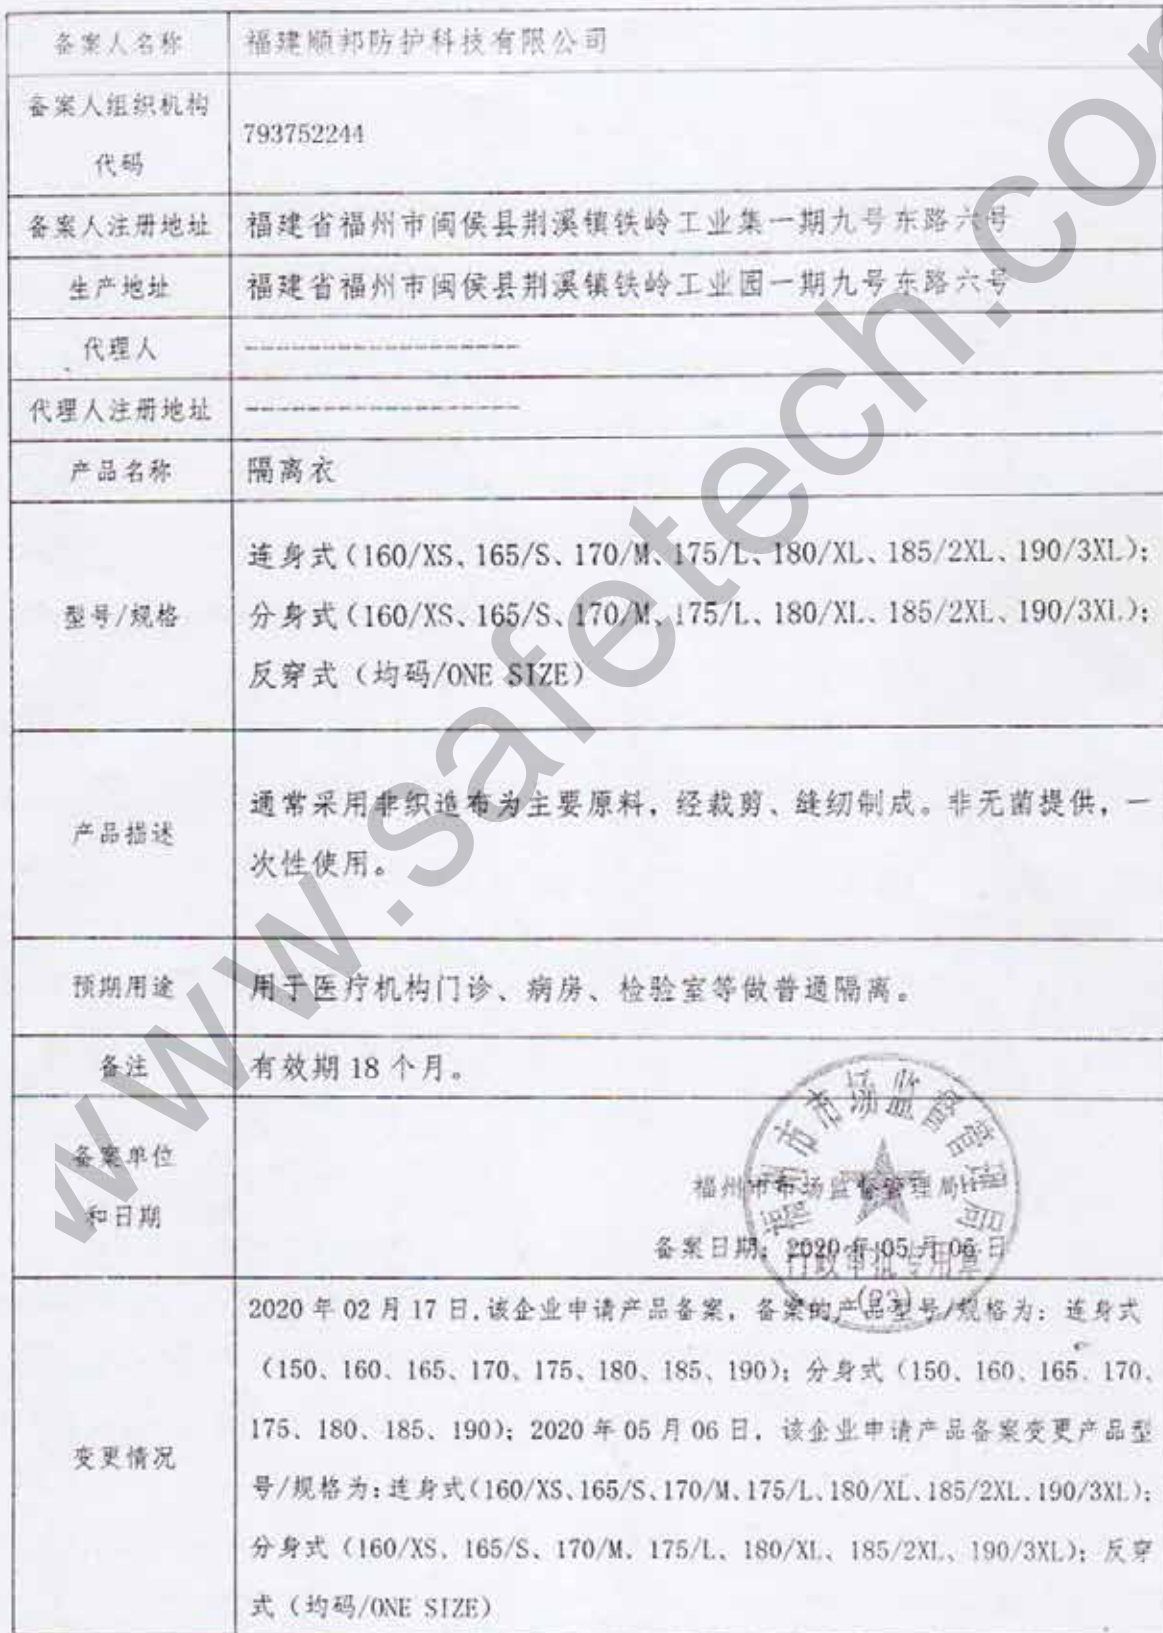 备案人名称
福建顺邦防护科技有限公司
备案人组织机构
代码
793752244
备案人注册地址
福建省福州市闽侯县荆溪镇铁岭工业集一期九号东路六号
生产地址
福建省福州市闽侯县荆溪镇铁岭工业园一期九号东路六号
代理人
------------------
代理人注册地址
------------------
产品名称
隔离衣
型号/规格
连身式(160/XS、165/S、170/M、175/L、180/XL、185/2XL、190/3XL);
分身式(160/XS、165/S、170/M、175/L、180/XL、185/2XL、190/3XL);
反穿式（均码/ONE SIZE）
产品描述
通常采用非织造布为主要原料，经裁剪、缝纫制成。非无菌提供，一
次性使用。
预期用途
用于医疗机构门诊、病房、检验室等做普通隔离。
备注
有效期 18 个月。
备案单位
和日期
福州市市场监督管理局
备案日期：2020 年 05 月 06 日
福州市市场监督管理局
行政审批专用章
变更情况
2020 年 02 月 17 日,该企业申请产品备案，备案的产品型号/规格为：连身式
（150、160、165、170、175、180、185、190）；分身式（150、160、165、170、
175、180、185、190）；2020 年 05 月 06 日，该企业申请产品备案变更产品型
号/规格为:连身式(160/XS、165/S、170/M、175/L、180/XL、185/2XL、190/3XL);
分身式（160/XS、165/S、170/M、175/L、180/XL、185/2XL、190/3XL）；反穿
式（均码/ONE SIZE）
www.safetech.co